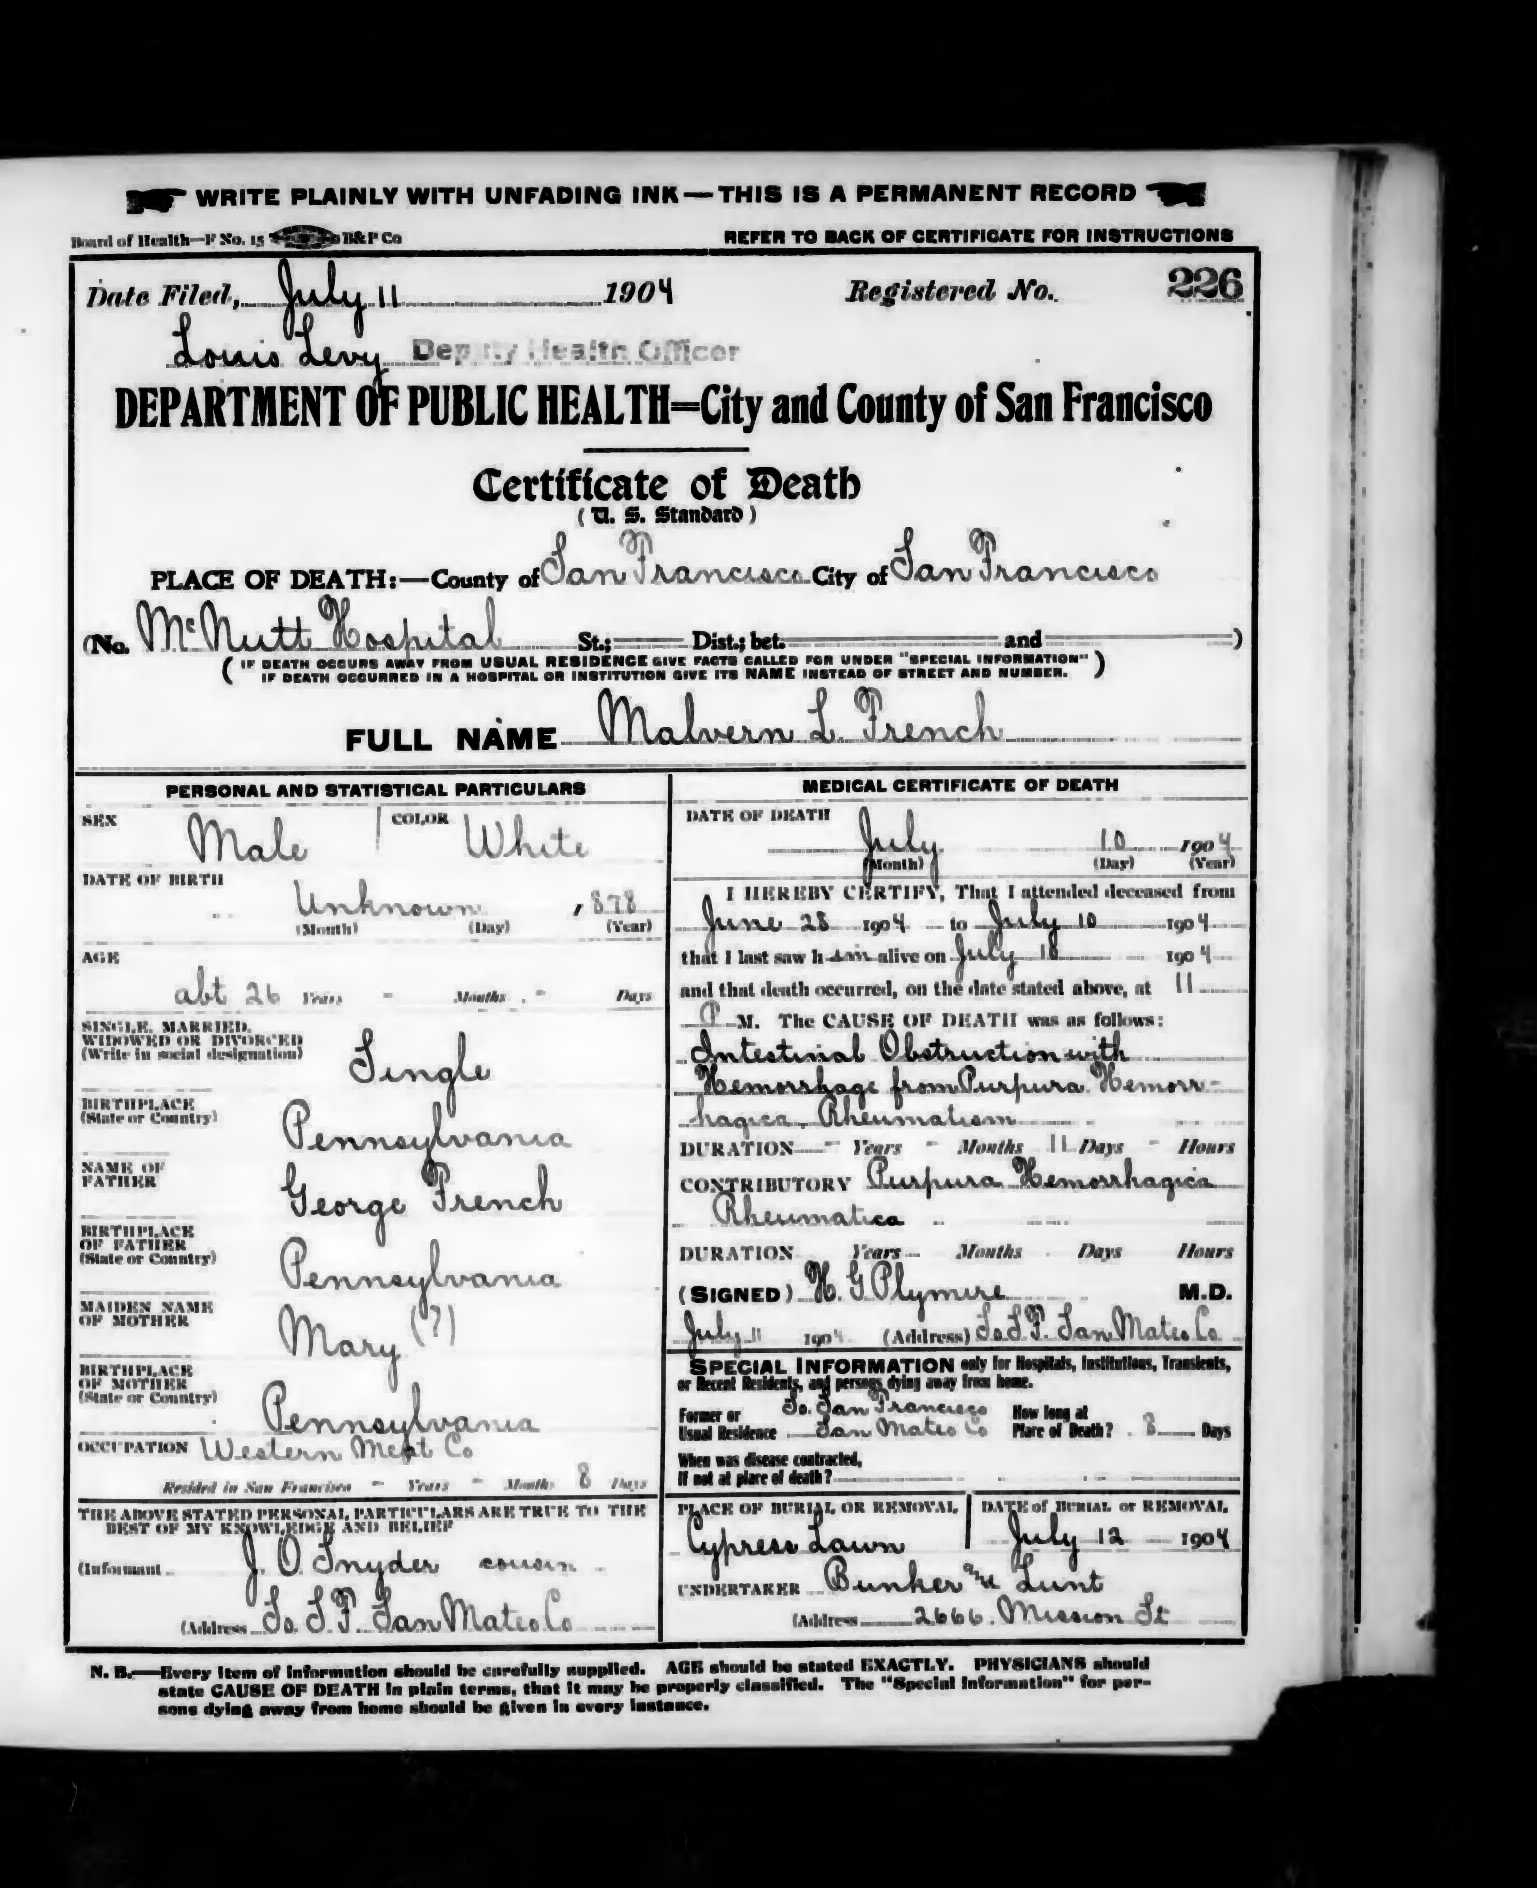 WRITE PLAINLY WITH UNFADING INK—THIS IS A PERMANENT RECORD
Board of Health—F No. 15 B&P Co
REFER TO BACK OF CERTIFICATE FOR INSTRUCTIONS
Date Filed, July 11 1904 Registered No. 226
Louis Levy Deputy Health Officer
DEPARTMENT OF PUBLIC HEALTH=City and County of San Francisco
Certificate of Death
(U. S. Standard)
PLACE OF DEATH:—County of San Francisco City of San Francisco
(No. McNutt Hospital St.; Dist.; bet. and )
(IF DEATH OCCURS AWAY FROM USUAL RESIDENCE GIVE FACTS CALLED FOR UNDER "SPECIAL INFORMATION"
IF DEATH OCCURRED IN A HOSPITAL OR INSTITUTION GIVE ITS NAME INSTEAD OF STREET AND NUMBER.)
FULL NAME Malvern L. French
PERSONAL AND STATISTICAL PARTICULARS
SEX Male COLOR White
DATE OF BIRTH
Unknown , 878
(Month) (Day) (Year)
AGE
abt 26 Years - Months - Days
SINGLE, MARRIED,
WIDOWED OR DIVORCED
(Write in social designation)
Single
BIRTHPLACE
(State or Country)
Pennsylvania
NAME OF
FATHER
George French
BIRTHPLACE
OF FATHER
(State or Country)
Pennsylvania
MAIDEN NAME
OF MOTHER
Mary (?)
BIRTHPLACE
OF MOTHER
(State or Country)
Pennsylvania
OCCUPATION Western Meat Co
Resided in San Francisco - Years - Months 8 Days
THE ABOVE STATED PERSONAL PARTICULARS ARE TRUE TO THE
BEST OF MY KNOWLEDGE AND BELIEF
(Informant J. O. Snyder cousin
(Address So. S. F. San Mateo Co
MEDICAL CERTIFICATE OF DEATH
DATE OF DEATH
July 10 1904
(Month) (Day) (Year)
I HEREBY CERTIFY, That I attended deceased from
June 28 1904 to July 10 1904
that I last saw h im alive on July 10 1904
and that death occurred, on the date stated above, at 11
P M. The CAUSE OF DEATH was as follows:
Intestinal Obstruction with
Hemorrhage from Purpura Hemorr-
hagica. Rheumatism
DURATION - Years - Months 11 Days - Hours
CONTRIBUTORY Purpura Hemorrhagica
Rheumatica
DURATION Years Months Days Hours
(SIGNED) H. G. Plymire M.D.
July 11 1904 (Address) So. S. F. San Mateo Co.
SPECIAL INFORMATION only for Hospitals, Institutions, Transients,
or Recent Residents, and persons dying away from home.
Former or
Usual Residence
So. San Francisco
San Mateo Co
How long at
Place of Death? 8 Days
When was disease contracted,
If not at place of death?
PLACE OF BURIAL OR REMOVAL
Cypress Lawn
DATE of BURIAL or REMOVAL
July 12 1904
UNDERTAKER Bunker and Lunt
(Address 2666 Mission St
N. B.—Every item of information should be carefully supplied. AGE should be stated EXACTLY. PHYSICIANS should
state CAUSE OF DEATH in plain terms, that it may be properly classified. The "Special Information" for per-
sons dying away from home should be given in every instance.